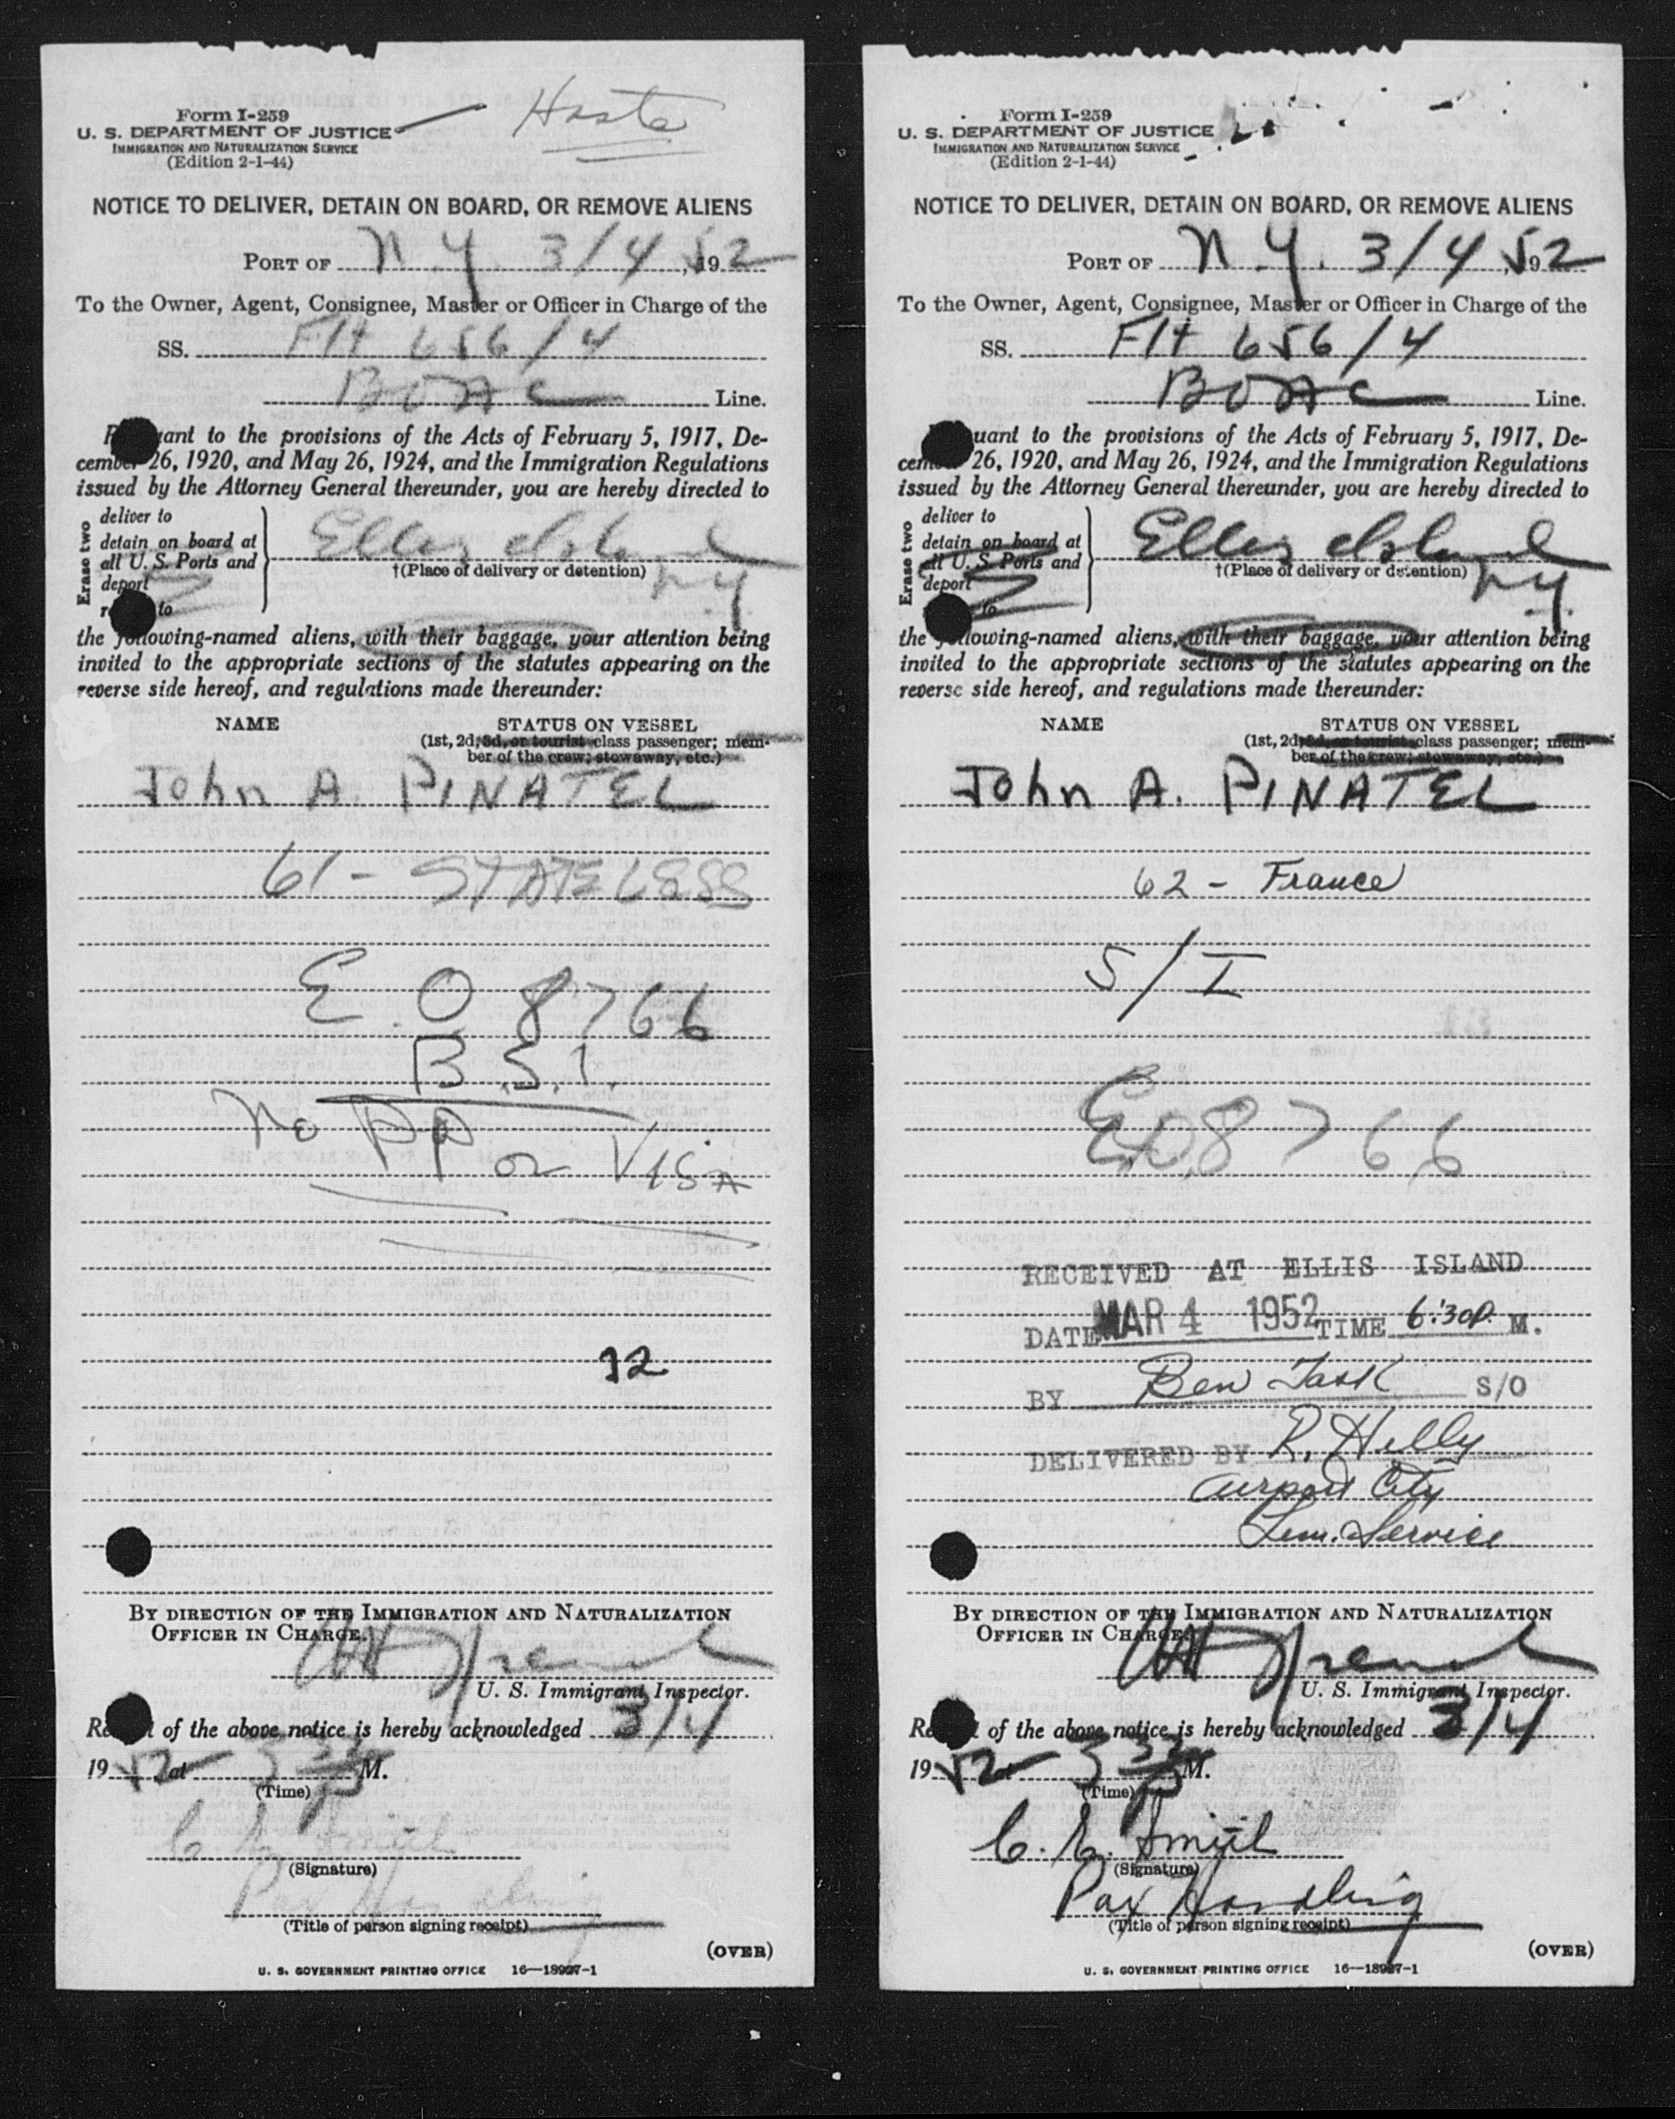 Form I-259
U. S. DEPARTMENT OF JUSTICE
IMMIGRATION AND NATURALIZATION SERVICE
(Edition 2-1-44)
NOTICE TO DELIVER, DETAIN ON BOARD, OR REMOVE ALIENS
PORT OF N.Y. 3/4, 1952
To the Owner, Agent, Consignee, Master or Officer in Charge of the
SS. Flt 656/4
BOAC Line.
uant to the provisions of the Acts of February 5, 1917, De-
cember 26, 1920, and May 26, 1924, and the Immigration Regulations
issued by the Attorney General thereunder, you are hereby directed to
Erase two
deliver to
detain on board at
all U. S. Ports and
deport
to
Ellis Island
†(Place of delivery or detention) N.Y.
the following-named aliens, with their baggage, your attention being
invited to the appropriate sections of the statutes appearing on the
reverse side hereof, and regulations made thereunder:
NAME STATUS ON VESSEL
(1st, 2d, 3d, or tourist class passenger; mem-
ber of the crew; stowaway, etc.)
John A. PINATEL
61 - STATELESS
E.O 8766
B.S.I.
No PP or VISA
12
BY DIRECTION OF THE IMMIGRATION AND NATURALIZATION
OFFICER IN CHARGE.
U. S. Immigrant Inspector.
of the above notice is hereby acknowledged 3/4
1952 at M.
(Time)
C. Smith
(Signature)
Pax Handling
(Title of person signing receipt)
(OVER)
U. S. GOVERNMENT PRINTING OFFICE 16—18927-1
Form I-259
U. S. DEPARTMENT OF JUSTICE
IMMIGRATION AND NATURALIZATION SERVICE
(Edition 2-1-44)
NOTICE TO DELIVER, DETAIN ON BOARD, OR REMOVE ALIENS
PORT OF N.Y. 3/4, 1952
To the Owner, Agent, Consignee, Master or Officer in Charge of the
SS. Flt 656/4
BOAC Line.
uant to the provisions of the Acts of February 5, 1917, De-
cember 26, 1920, and May 26, 1924, and the Immigration Regulations
issued by the Attorney General thereunder, you are hereby directed to
Erase two
deliver to
detain on board at
all U. S. Ports and
deport
to
Ellis Island
†(Place of delivery or detention) N.Y.
the following-named aliens, with their baggage, your attention being
invited to the appropriate sections of the statutes appearing on the
reverse side hereof, and regulations made thereunder:
NAME STATUS ON VESSEL
(1st, 2d, 3d, or tourist class passenger; mem-
ber of the crew; stowaway, etc.)
John A. PINATEL
62 - France
S/I
E.O. 8766
RECEIVED AT ELLIS ISLAND
DATE MAR 4 1952 TIME 6:30P. M.
BY Ben Task S/O
DELIVERED BY R. Hilly
Airport City
Lim. Service
BY DIRECTION OF THE IMMIGRATION AND NATURALIZATION
OFFICER IN CHARGE.
U. S. Immigrant Inspector.
of the above notice is hereby acknowledged 3/4
1952 at M.
(Time)
C. Smith
(Signature)
Pax Handling
(Title of person signing receipt)
(OVER)
U. S. GOVERNMENT PRINTING OFFICE 16—18927-1